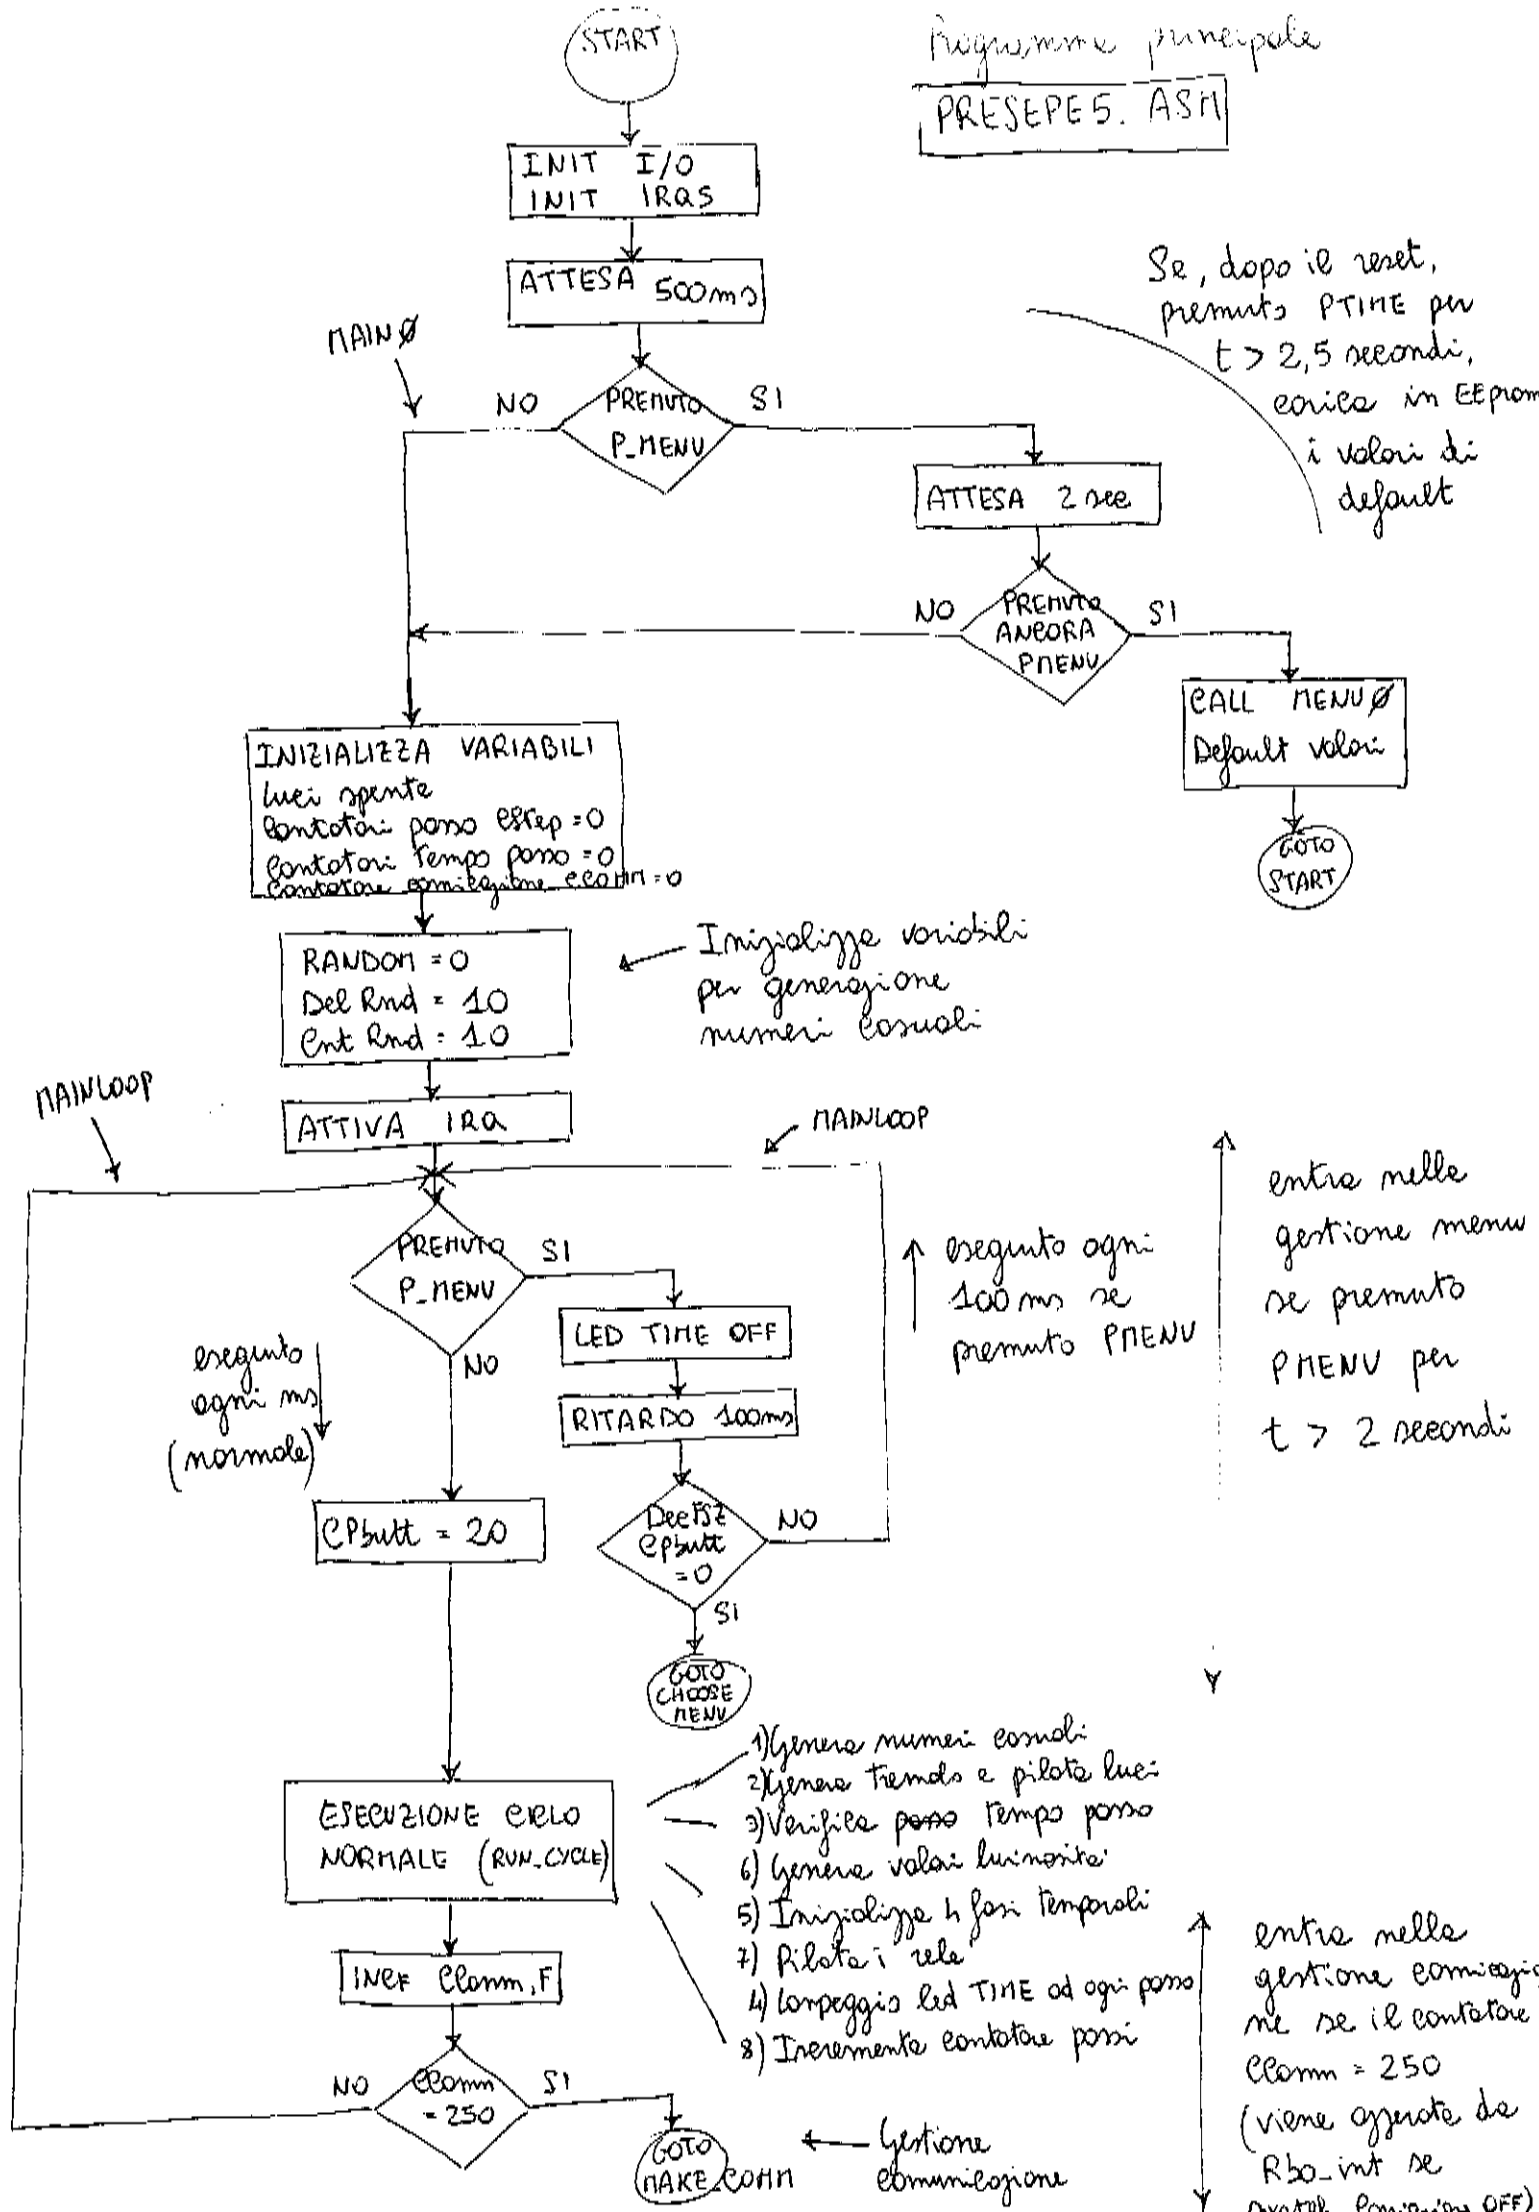 START
Programma principale
PRESEPE5. ASM
INIT I/O
INIT IRQS
ATTESA 500ms
Se, dopo il reset,
premuto PTIME per
t > 2,5 secondi,
carica in EEprom
i valori di
default
MAINØ
NO
PREMUTO
P_MENU
SI
ATTESA 2 sec
NO
PREMUTO
ANCORA
PMENU
SI
CALL MENUØ
Default valori
GOTO
START
INIZIALIZZA VARIABILI
luci spente
Contatori passo CStep=0
Contatori Tempo passo=0
Contatore comunicazione CCOMM=0
RANDOM = 0
Del Rnd = 10
Cnt Rnd = 10
Inizializza variabili
per generazione
numeri casuali
ATTIVA IRQ
MAINLOOP
MAINLOOP
PREMUTO
P_MENU
SI
NO
LED TIME OFF
RITARDO 100ms
eseguito
ogni ms
(normale)
eseguito ogni
100 ms se
premuto PMENU
entra nella
gestione menu
se premuto
PMENU per
t > 2 secondi
CPbutt = 20
DecFSZ
CPbutt
=0
NO
SI
GOTO
CHOOSE
MENU
ESECUZIONE CICLO
NORMALE (RUN_CYCLE)
1) Genera numeri casuali
2) Genera tremolo e pilota luci
3) Verifica passo Tempo passo
6) Genera valori luminosita'
5) Inizializza 4 fasi temporali
7) Pilota i rele'
4) Lampeggio led TIME ad ogni passo
8) Incrementa contatore passi
INCF CComm,F
NO
CComm
= 250
SI
GOTO
MAKE_COMM
Gestione
comunicazione
entra nella
gestione comunicazio
ne se il contatore
CComm = 250
(viene azzerato da
Rb0_int se
OFF)